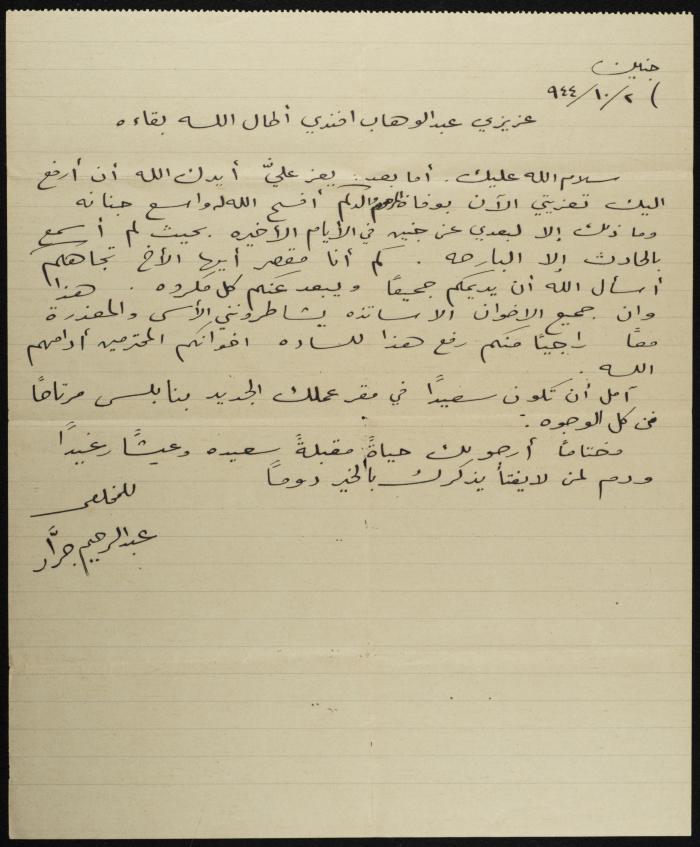 جنين
٢/١٠/٩٤٤
عزيزي عبدالوهاب افندي أطال الله بقاءه
سلام الله عليك. أما بعد: يعز عليَّ أيدك الله أن أرفع
اليك تعزيتي الآن بوفاة المرحوم والدكم أفسح الله له واسع جنانه
وما ذلك إلا لبعدي عن جنين في الأيام الأخيره بحيث لم أسمع
بالحادث إلا البارحه. كم أنا مقصر أيها الأخ تجاهكم
أسأل الله أن يديمكم جميعًا ويبعد عنكم كل مكروه. هذا
وان جميع الاخوان الاساتذه يشاطرونني الأسى والمعذرة
معًا راجيًا منكم رفع هذا للساده اخوانكم المحترمين أدامهم
الله.
آمل أن تكون سعيدًا في مقر عملك الجديد بنابلس مرتاحًا
من كل الوجوه.
وختامًا أرجو لك حياةً مقبلةً سعيده وعيشًا رغيدًا
ودم لمن لا يفتأ يذكرك بالخير دومًا
المخلص
عبدالرحيم جرَّار